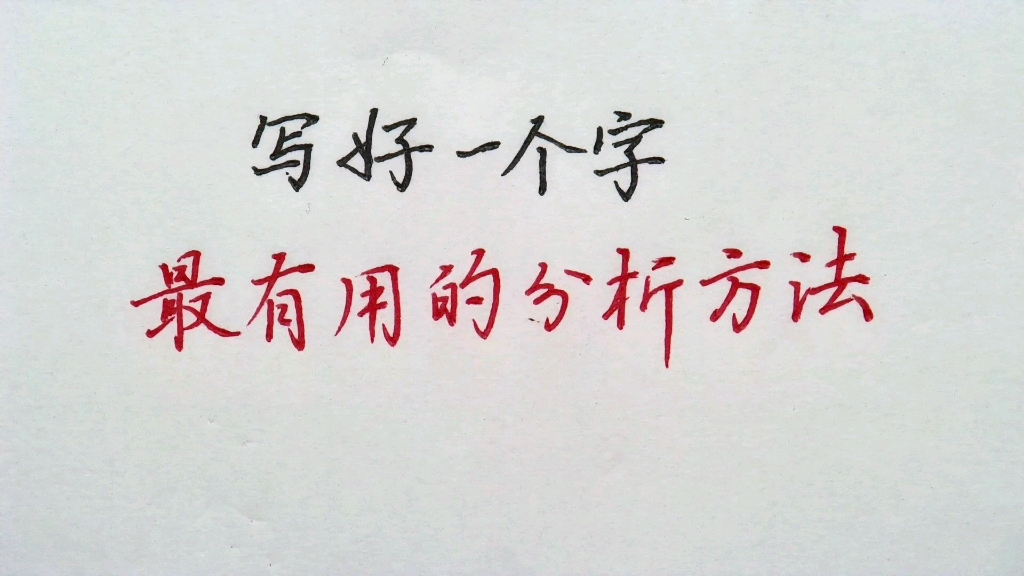 写好一个字
最有用的分析方法